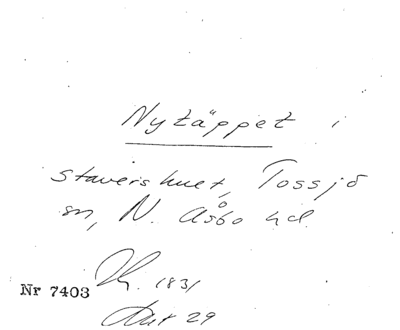 Nytäppet i
stavershuet, Tossjö
sn, N. Åsbo hd.
1831
Nr 7403
Akt 29